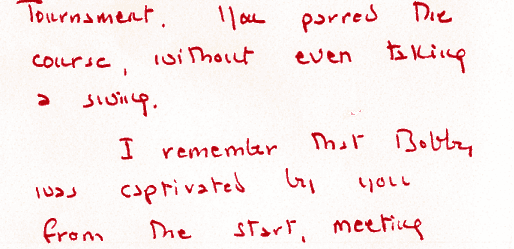 Tournament. You parred the
course, without even taking
a swing.
I remember that Bobby
was captivated by you
from the start, meeting